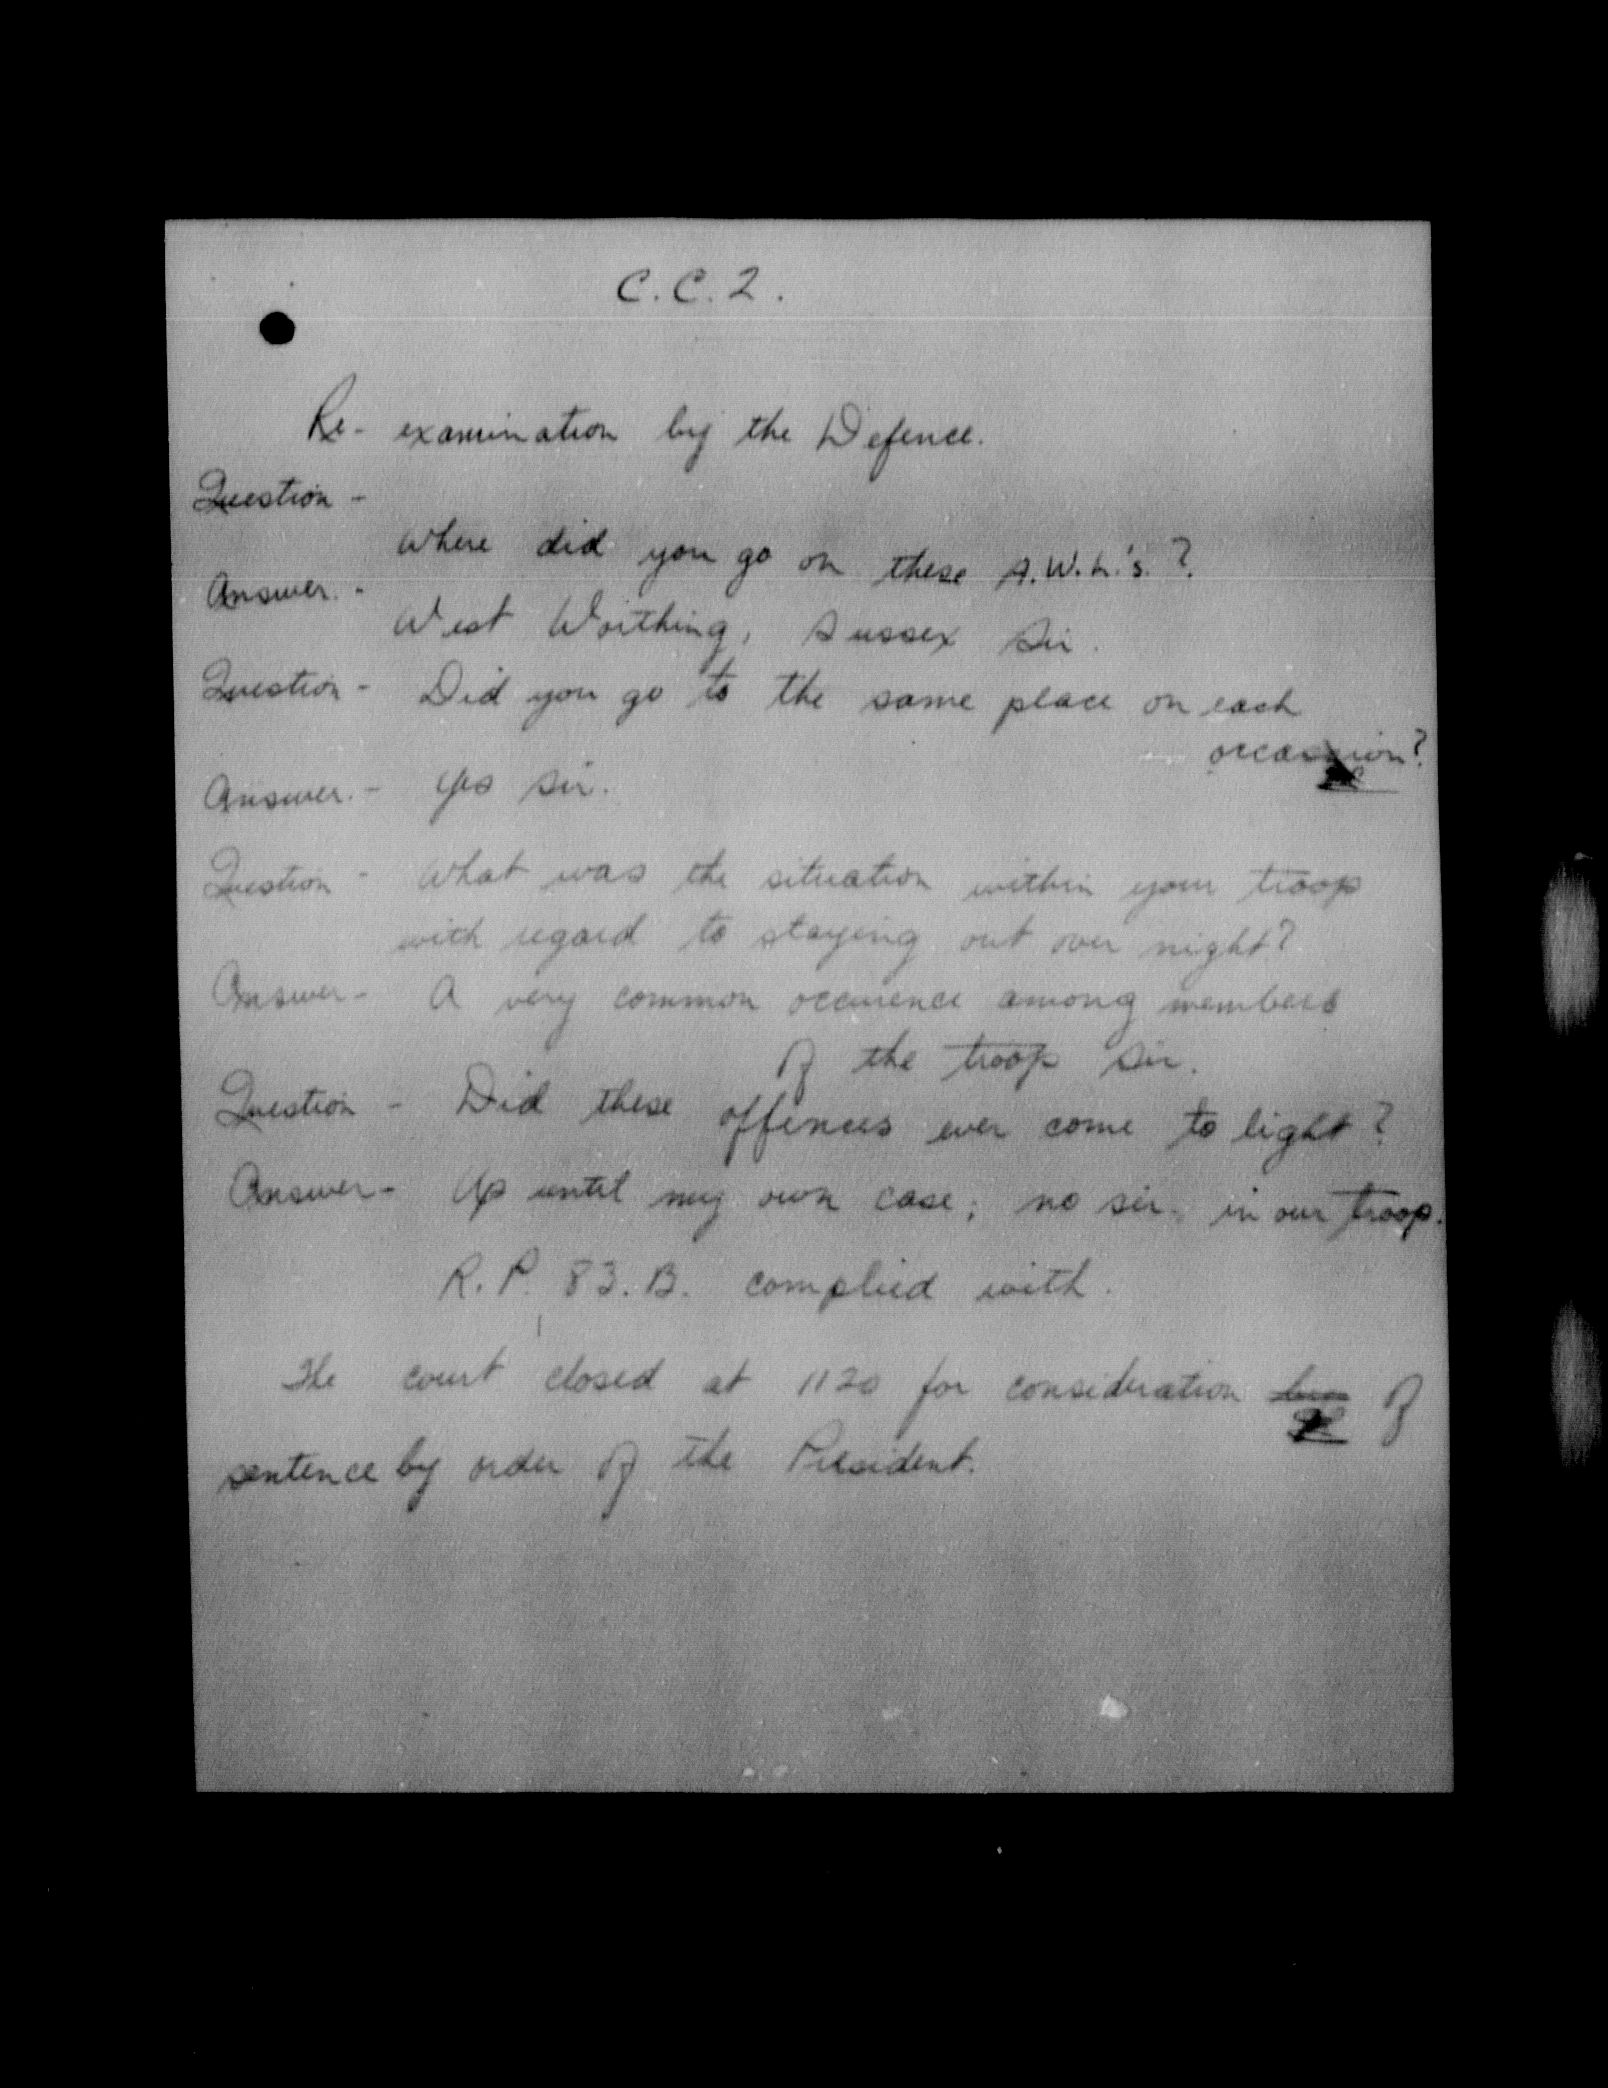 C.C.2.
Re-examination by the Defence.
Question -
Where did you go on these A.W.L.'s.?
Answer. -
West Worthing, Sussex Sir.
Question - Did you go to the same place on each
occassion?
Answer. - Yes sir.
Question - What was the situation within your troop
with regard to staying out over night?
Answer - A very common occurence among members
of the troop Sir.
Question - Did these offences ever come to light?
Answer - Up until my own case; no sir, in our troop.
R.P. 83.B. complied with.
The court closed at 1120 for consideration of
sentence by order of the President.